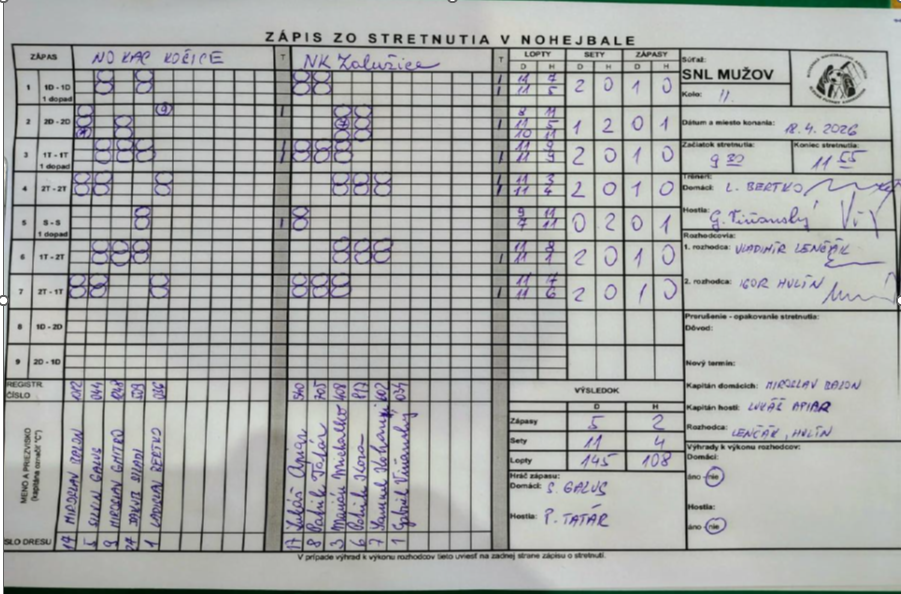 ZÁPIS ZO STRETNUTIA V NOHEJBALE
ZÁPAS NO KAC KOŠICE T NK Zalužice T LOPTY SETY ZÁPASY
D H D H D H
1 1D - 1D 1 dopad 11 7 11 5 2 0 1 0
2 2D - 2D 8 11 11 5 10 11 1 2 0 1
3 1T - 1T 1 dopad 11 9 11 9 2 0 1 0
4 2T - 2T 11 3 11 4 2 0 1 0
5 S - S 1 dopad 9 11 7 11 0 2 0 1
6 1T - 2T 11 8 11 1 2 0 1 0
7 2T - 1T 11 11 6 2 0 1 0
8 1D - 2D
9 2D - 1D
Súťaž:
SNL MUŽOV
Kolo: 11.
Dátum a miesto konania:
18.4. 2026
Začiatok stretnutia: 9 30
Koniec stretnutia: 11 55
Tréneri:
Domáci: L. BERTKO
Hostia: G.
Rozhodcovia:
1. rozhodca: VLADIMÍR LENČÁK
2. rozhodca: IGOR HULÍN
Prerušenie - opakovanie stretnutia:
Dôvod:
Nový termín:
Kapitán domácich: MIROSLAV
Kapitán hostí: LUKÁŠ APIAR
Rozhodca: LENČÁK, HULÍN
Výhrady k výkonu rozhodcov:
Domáci:
áno - nie
Hostia:
áno - nie
VÝSLEDOK
D H
Zápasy 5 2
Sety 11 4
Lopty 145 108
Hráč zápasu:
Domáci: S. GALUS
Hostia: P. TATÁR
REGISTR. ČÍSLO
MENO A PRIEZVISKO (kapitána označiť "C")
MIROSLAV
GALUS
MIROSLAV
JAKUB
LADISLAV BERTKO
Lukáš Apiar
Patrik Tatár
Marián
Patrik
Samuel
Gabriel
SLO DRESU 17 5 9 27 1 17 8 3 6 7 1
V prípade výhrad k výkonu rozhodcov tieto uviesť na zadnej strane zápisu o stretnutí.